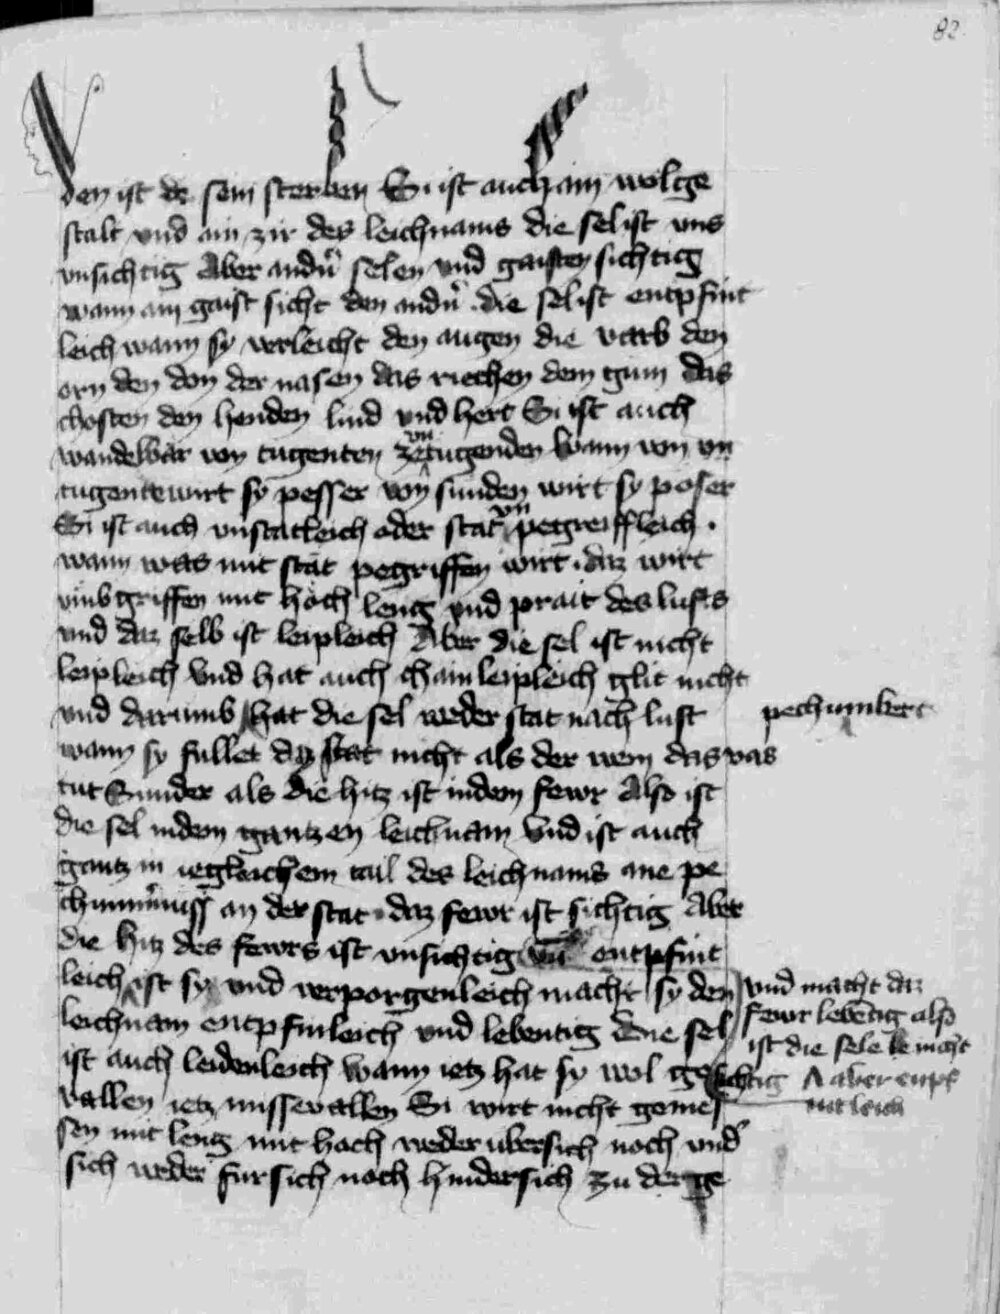 82
den ist der sein sterben Si ist auch ain wolge
stalt und ain zir des leichnams die sel ist uns
unsichtig Aber andern selen und gaisten sichtig
wann ain gaist sicht den andern die sel ist entpfint
leich wann sy verleicht den augen die varb den
orn den don der nasen das riechen dem gum das
chosten den henden lind und hert Si ist auch
wandelbar von tugenten ze untugenden wann von
tugent wirt sy pesser von sunden wirt sy poser
Si ist auch unstatleich oder stat unpegreiffleich .
wann was mit stat pegriffen wirt . daz wirt
umbgriffen mit hoch leng und prait des lufts
und daz selb ist leipleich Aber die sel ist nicht
leipleich Und hat auch chain leipleich glit nicht
und darumb hat die sel weder stat nach lust
pechumbert
wann sy fullet die stat nicht als der wein das vas
tut Sunder als die hitz ist in dem fewr Also ist
die sel in dem gantzen leichnam Und ist auch
gantz in iegleichem tail des leichnams ane pe
chummernuss an der stat . daz fewr ist sichtig Aber
die hitz des fewrs ist unsichtig un entpfint
leich ist sy und verporgenleich macht sy den
und macht daz
fewr lebentig also
ist die sele nicht
sichtig aber enpf
int leich
leichnam entpfinleich und lebentig Die sel
ist auch leidenleich Wann ietz hat sy wol ge
vallen ietz missevallen Si wirt nicht gemes
sen mit leng mit hoch weder ubersich noch under
sich weder fursich noch hindersich zu der ge